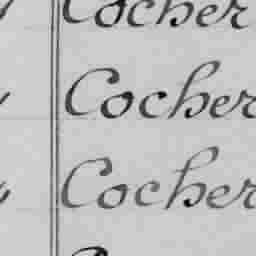 Cocher
Cocher
Cocher